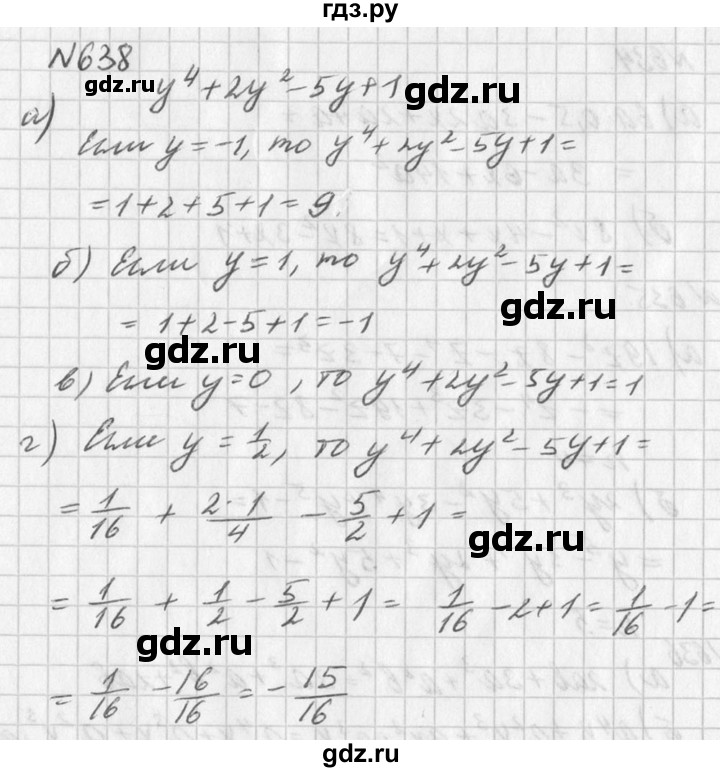 гдз.ру
№638
y⁴+2y²-5y+1
а)
Если y=-1, то y⁴+2y²-5y+1=
=1+2+5+1=9.
б) Если y=1, то y⁴+2y²-5y+1=
gdz.ru
= 1+2-5+1=-1
gdz.ru
в) Если y=0, то y⁴+2y²-5y+1=1
г) Если y=1/2, то y⁴+2y²-5y+1=
= 1/16 + 2·1/4 - 5/2 +1=
gdz.ru
= 1/16 + 1/2 - 5/2 + 1 = 1/16 -2+1 = 1/16 -1=
gdz.ru
= 1/16 - 16/16 = - 15/16
gdz.ru